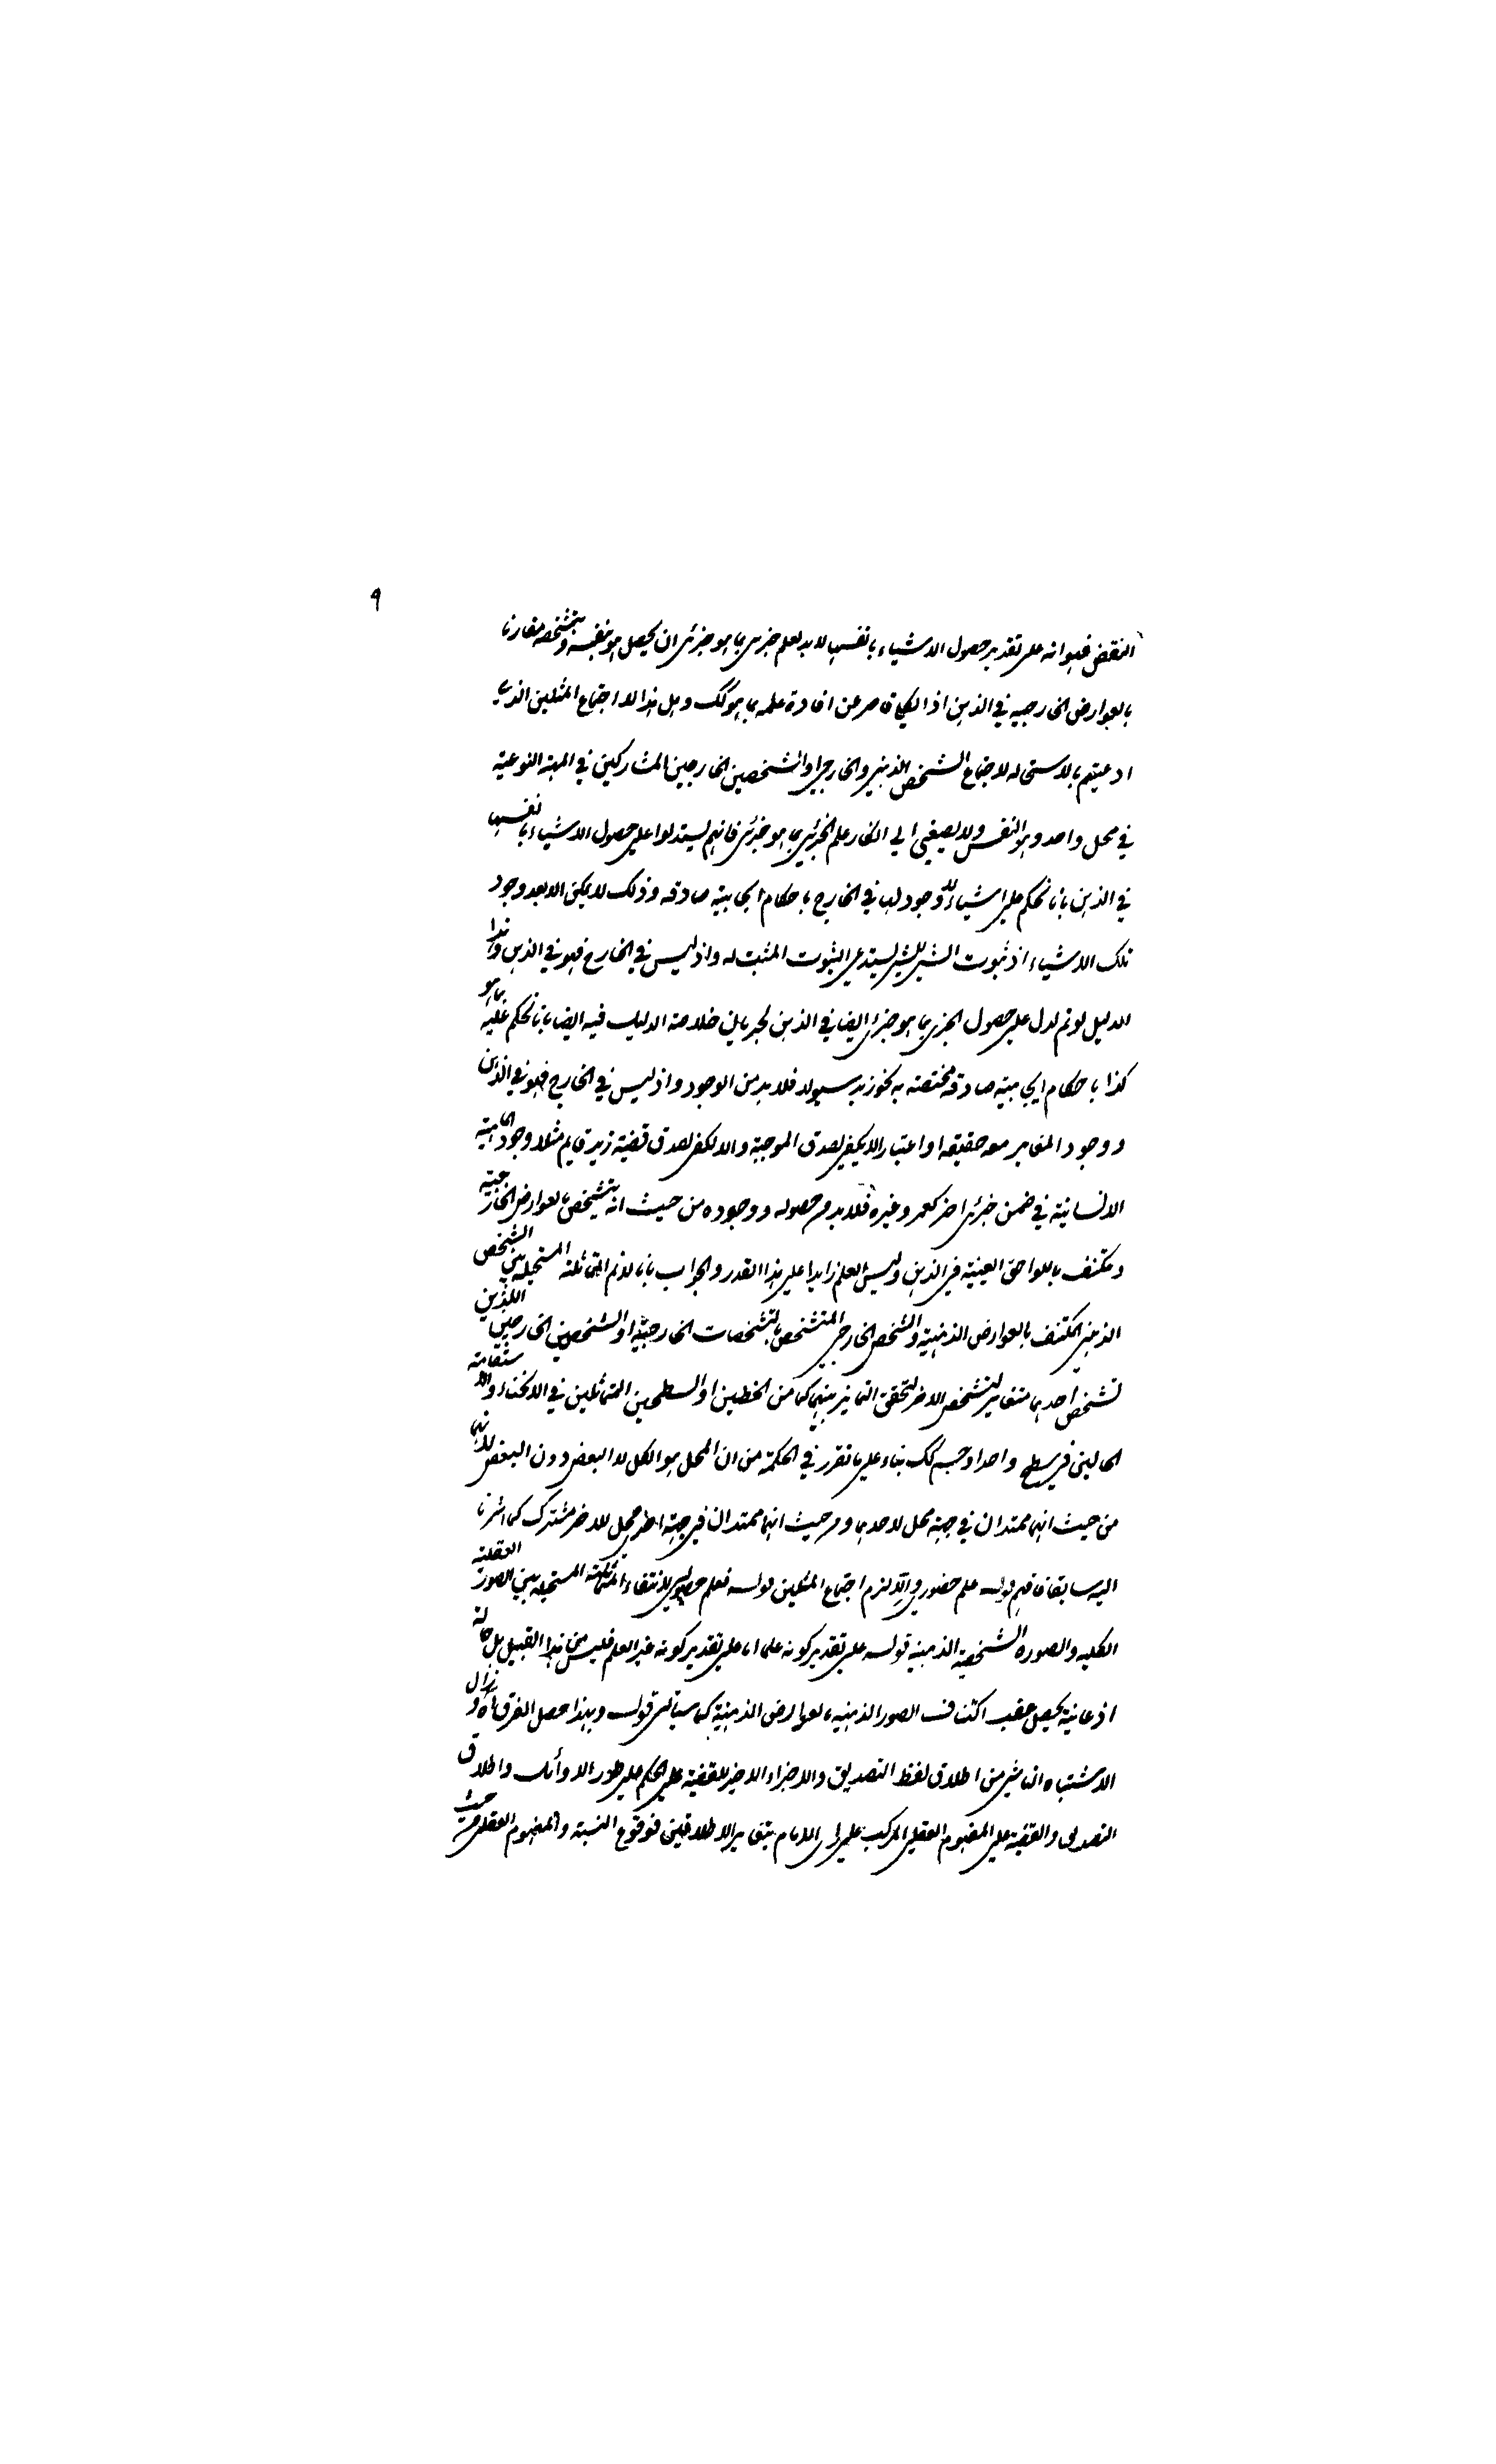 ٩
النقض فهو انه على تقدير حصول الاشياء بانفسها لابد لعلم جزئي بما هو جزئي ان يحصل هو بنفسه وبتشخصه مقارنا
بالعوارض الخارجية في الذهن اذ الكلي قاصر عن افادة علمه بما هو كك وهل هذا الا اجتماع المثلين الذي
ادعيتم بالاستحاله لاجتماع الشخص الذهني والخارجي او الشخصين الخارجين المشاركين في المهية النوعية
في محل واحد وهو النفس ولا يصغى الى انكار علم الجزئي بما هو جزئي فانهم يستدلوا على حصول الاشياء بانفسها
في الذهن بانا نحكم على اشياء لا وجود لها في الخارج باحكام ايجابية صادقه وذلك لا يمكن الا بعد وجود
تلك الاشياء اذ ثبوت الشي للشي يستدعي الثبوت المثبت له واذ ليس في الخارج فهو في الذهن وهذا
الدليل لو تم لدل على حصول الجزي بما هو جزئي ايضا في الذهن لجريان خلاصة الدليل فيه ايضا بانا نحكم عليه بما هو
كذا باحكام ايجابية صادقة مختصة به نحو زيد سيولد فلابد من الوجود واذ ليس في الخارج فهو في الذهن
ووجود المغاير معه حقيقة او اعتبارا لا يكفي لصدق الموجبة والا لكفى لصدق قضية زيد قايم مثلا وجود الماهية
الانسانية في ضمن جزئي اخر كعمرو وغيره فلابد من حصوله ووجوده من حيث انه متشخص بالعوارض الخارجية
ومكتنف باللواحق العينية في الذهن وليس العلم زايدا على هذا القدر والجواب بانا لانم المماثلة المستحيلة بين الشخص
الذهني المكتنف بالعوارض الذهنية والشخص الخارجي المتشخص بالتشخصات الخارجية او الشخصين الخارجين اللذين
تشخص احدهما متغاير لتشخص الاخر لتحقق التمايز بينهما كما من الخطين او السطحين المتماثلين في الانحناء والاستقامة
الحالين في سطح واحد او جسم كك بناء على ما تقرر في الحكمة من ان المحل هو الكل لا البعض دون البعض لانهما
من حيث انهما ممتدان في جهة محل لاحدهما ومن حيث انهما ممتدان في جهة اخرى محل للاخر مشترك كما اشرنا
اليه سابقا فافهم قوله علم حضوري والا لزم اجتماع المثلين قوله فعلم حصولي لانتفاء المماثلة المستحيلة بين الصور العقلية
الكلية والصورة الشخصية الذهنية قوله على تقدير كونه علما اما على تقدير كونه غير العلم فليس من هذا القبيل بل حالة
اذعانية يحصل عقب اكتناف الصور الذهنية بالعوارض الذهنية كما سياتي قوله وبهذا حصل الفرق اه وزال
الاشتباه الناشي من اطلاق لفظ التصديق والاجزاء الاخير للقضية على الحكم على طور الاوائل واطلاق
التصديق والقضية على المفهوم العقلي المركب على راي الامام بتغاير الاطلاقين فوقوع النسبة والمفهوم العقلي من حيث